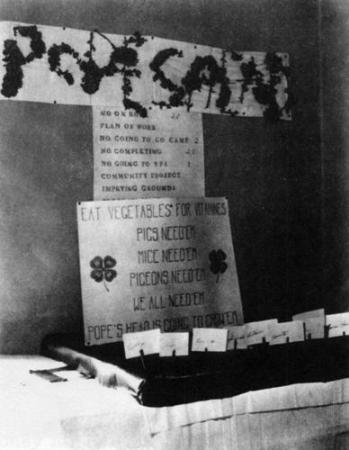 POPE
NO ON ROLL
PLAN OF WORK
NO GOING TO CO CAMP 2
NO COMPLETING
NO GOING TO 1
COMMUNITY PROJECT
IMPVING GROUNDS
EAT VEGETABLES FOR VITAMINES
PIGS NEED'EM
MICE NEED'EM
PIGEONS NEED'EM
WE ALL NEED'EM
POPE'S HEAD IS GOING TO GROW'EM